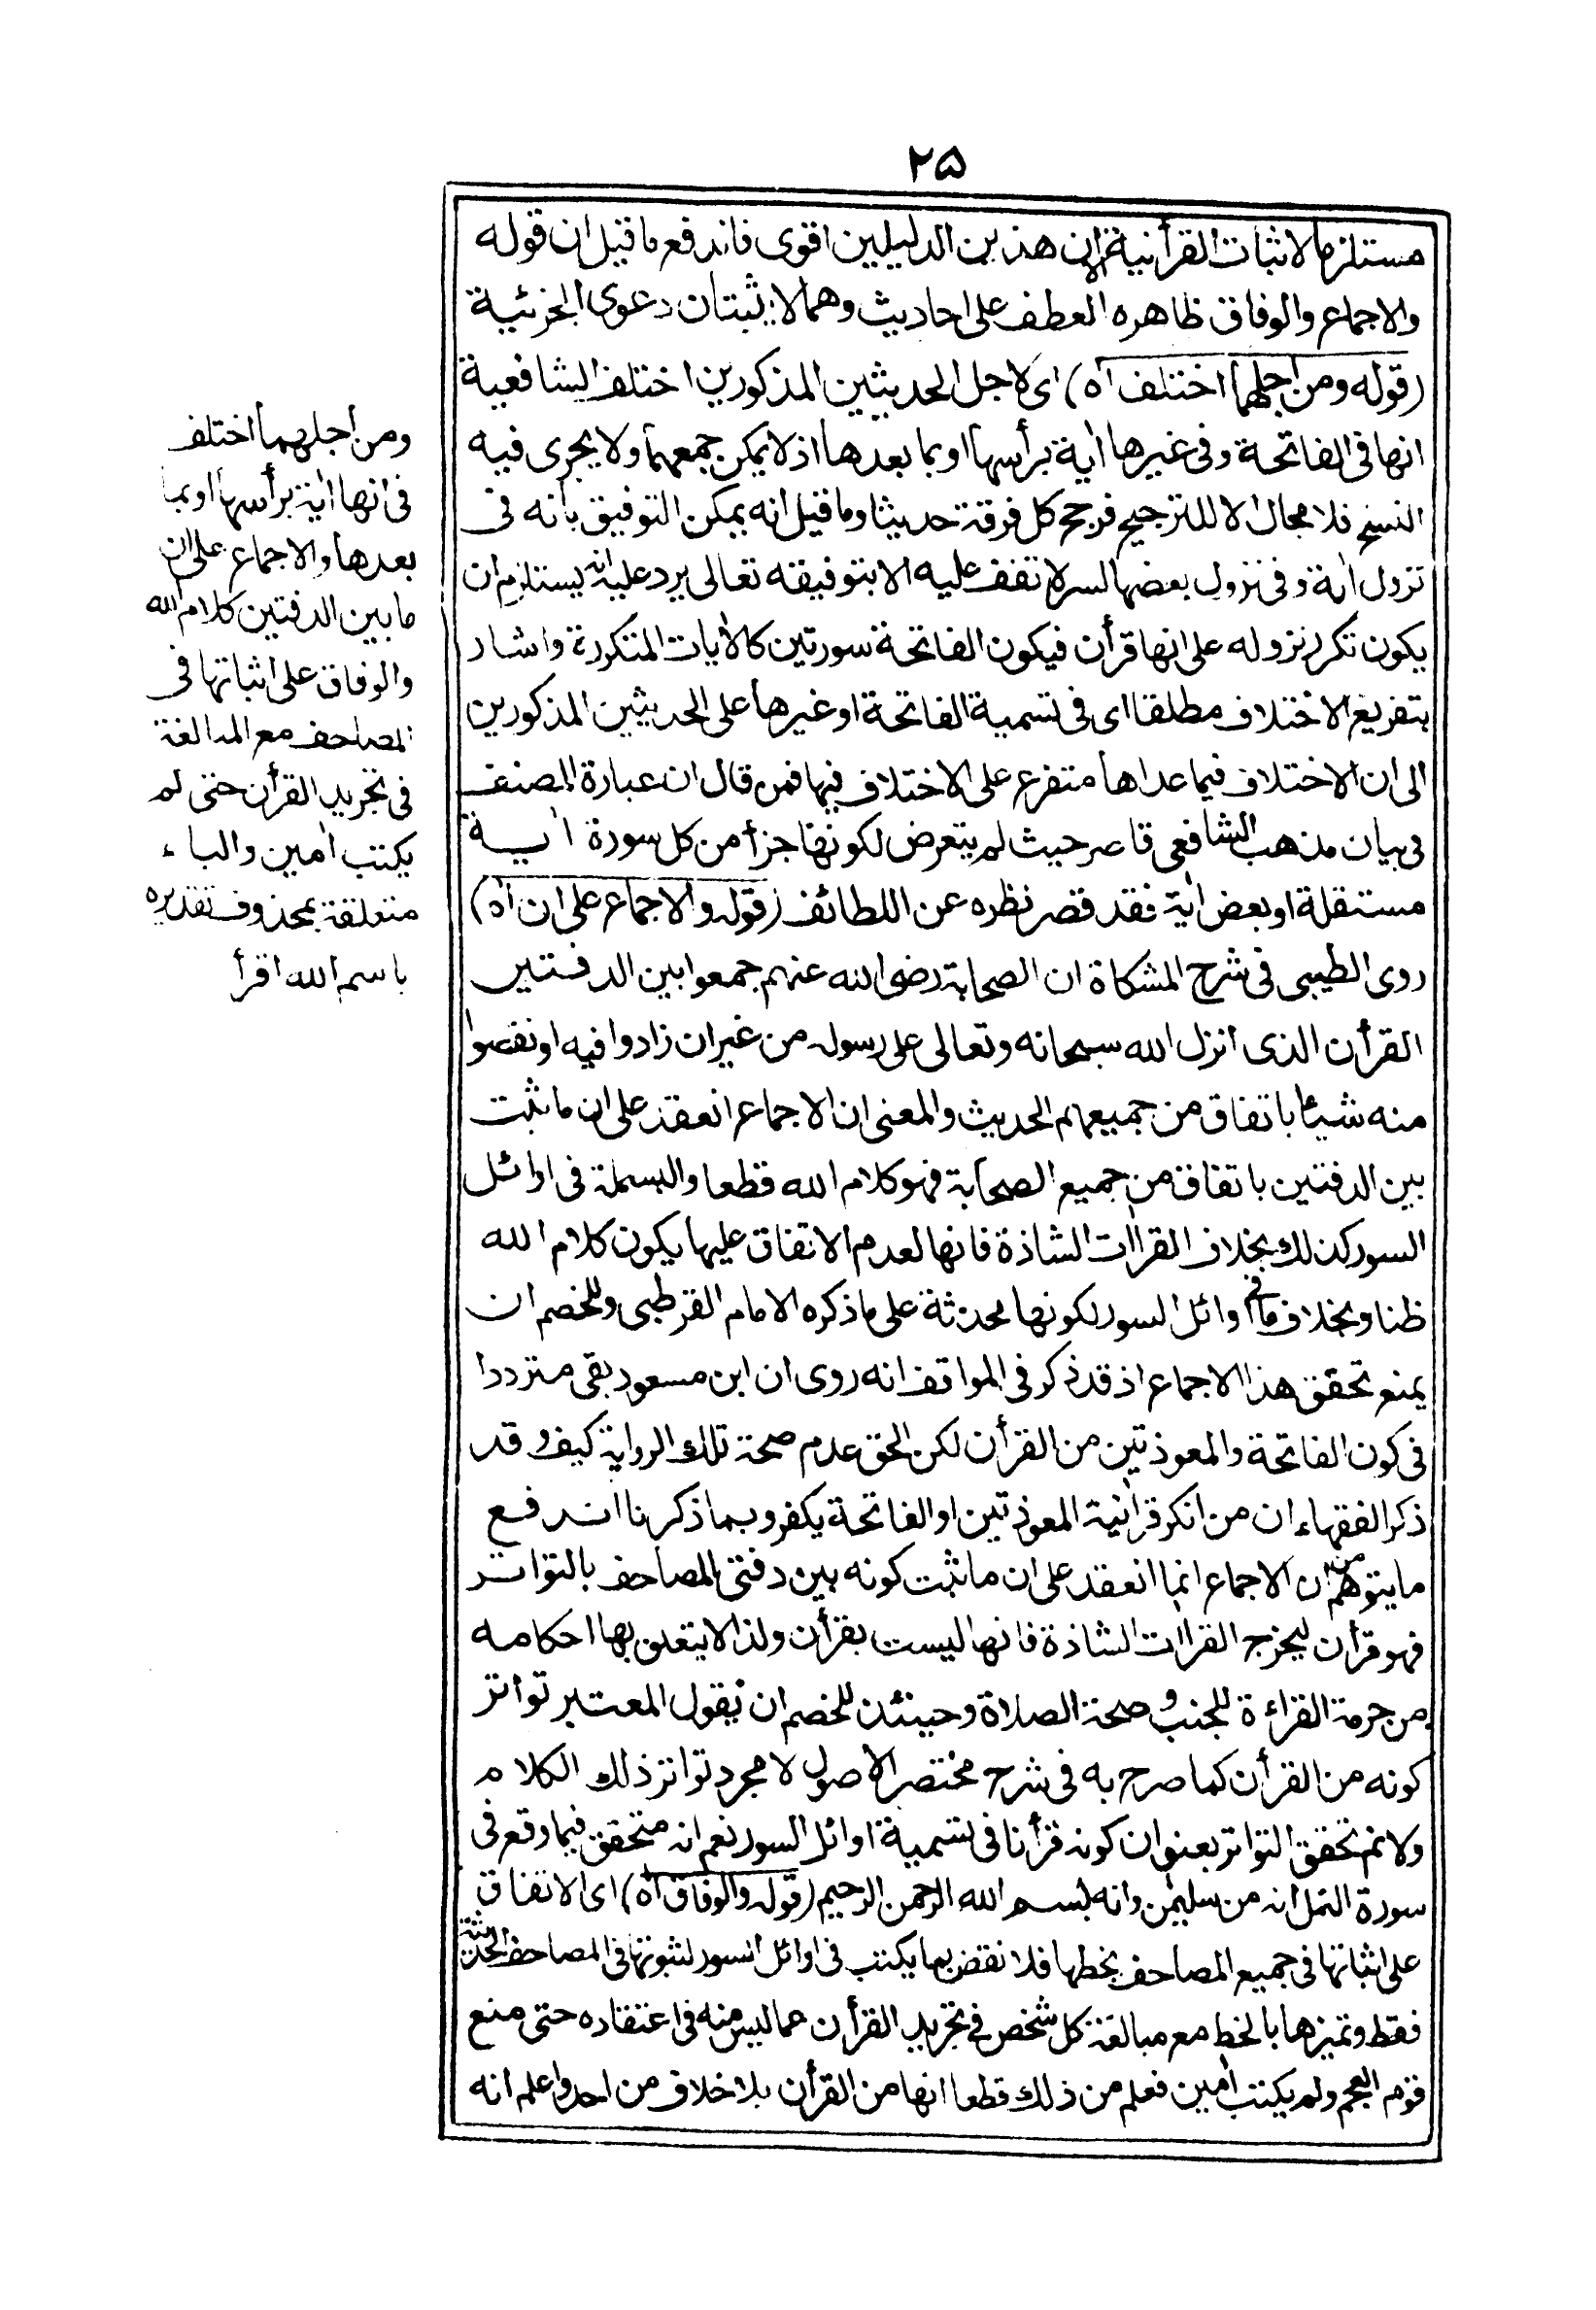 ٢٥
مستلزما لاثبات القرأنية لان هذين الدليلين اقوى فاندفع ما قيل ان قوله
والاجماع والوفاق ظاهره العطف على احاديث وهما لا يثبتان دعوى الجزئية
(قوله ومن اجلهما اختلف اه) اى لاجل الحديثين المذكورين اختلف الشافعية
انها فى الفاتحة وفى غيرها اية برأسها او بما بعدها اذ لا يمكن جمعهما ولا يجرى فيه
النسخ فلا مجال الا للترجيح فرجح كل فرقة حديثا وما قيل انه يمكن التوفيق بانه فى
نزول اية وفى نزول بعضها لسر لا تقف عليه الا بتوفيقه تعالى يرد عليه انه يستلزم ان
يكون تكرر نزوله على انها قرأن فيكون الفاتحة سورتين كالأيات المتكررة واشار
بتفريع الاختلاف مطلقا اى فى تسمية الفاتحة او غيرها على الحديثين المذكورين
الى ان الاختلاف فيما عداها متفرع على الاختلاف فيها فمن قال ان عبارة المصنف
فى بيان مذهب الشافعى قاصر حيث لم يتعرض لكونها جزأ من كل سورة اية
مستقلة او بعض اية فقد قصر نظره عن اللطائف (قوله والاجماع على ان اه)
روى الطيبى فى شرح المشكاة ان الصحابة رضى الله عنهم جمعوا بين الدفتين
القرأن الذى انزل الله سبحانه وتعالى على رسوله من غير ان زادوا فيه او نقصوا
منه شيئا باتفاق من جميعهم الحديث والمعنى ان الاجماع انعقد على ان ما ثبت
بين الدفتين باتفاق من جميع الصحابة فهو كلام الله قطعا والبسملة فى اوائل
السور كذلك بخلاف القراات الشاذة فانها لعدم الاتفاق عليها يكون كلام الله
ظنا وبخلاف ما فى اوائل السور لكونها محدثة على ما ذكره الامام القرطبى وللخصم ان
يمنع تحقق هذا الاجماع اذ قد ذكر فى المواقف انه روى ان ابن مسعود بقى مترددا
فى كون الفاتحة والمعوذتين من القرأن لكن الحق عدم صحة تلك الرواية كيف وقد
ذكر الفقهاء ان من انكر قرانية المعوذتين او الفاتحة يكفر وبما ذكرنا اندفع
ما يتوهم من ان الاجماع انما انعقد على ان ما ثبت كونه بين دفتى المصاحف بالتواتر
فهو قرأن ليخرج القراات الشاذة فانها ليست بقرأن ولذا لا يتعلق بها احكامه
من حرمة القراءة للجنب وصحة الصلاة وحينئذ للخصم ان يقول المعتبر تواتر
كونه من القرأن كما صرح به فى شرح مختصر الاصول لا مجرد تواتر ذلك الكلام
ولانم تحقق التواتر بعنوان كونه قرأنا فى تسمية اوائل السور نعم انه متحقق فيما وقع فى
سورة النمل انه من سليمن وانه بسم الله الرحمن الرحيم (قوله والوفاق اه) اى الاتفاق
على اثباتها فى جميع المصاحف بخطها فلا نقض بما يكتب فى اوائل السور لثبوتها فى المصاحف المحدثة
فقط وتميزها بالخط مع مبالغة كل شخص فى تجريد القرأن عما ليس منه فى اعتقاده حتى منع
قوم العجم ولم يكتب امين فعلم من ذلك قطعا انها من القرأن بلا خلاف من احد واعلم انه
ومن اجلهما اختلف
فى انها اية برأسها او بما
بعدها والاجماع على ان
ما بين الدفتين كلام الله
والوفاق على اثباتها فى
المصاحف مع المبالغة
فى تجريد القرأن حتى لم
يكتب امين والباء
متعلقة بمحذوف تقديره
باسم الله اقرأ